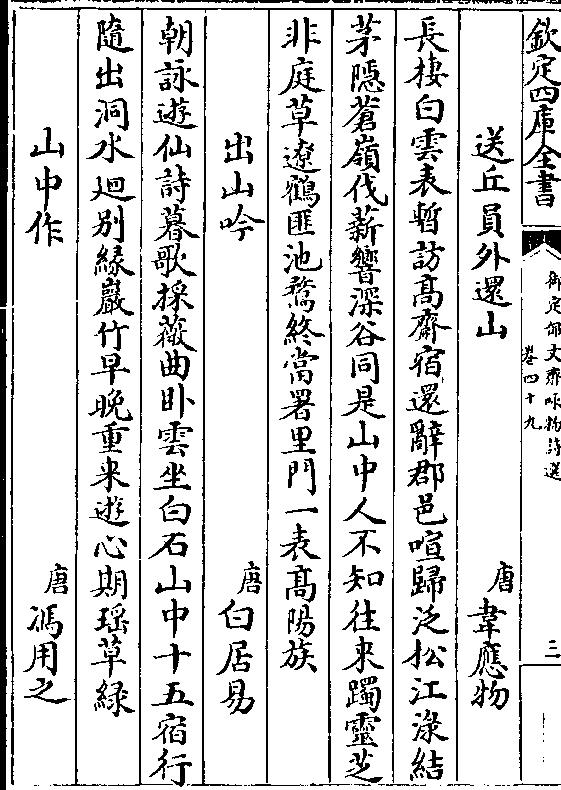 欽定四庫全書
御定佩文齋咏物詩選
卷四十九
三
送丘員外還山
唐 韋應物
長棲白雲表暫訪髙齋宿還辭郡邑喧歸泛松江渌結
茅隠蒼嶺伐薪響深谷同是山中人不知往來躅靈芝
非庭草遼鶴匪池鶩終當署里門一表髙陽族
出山吟
唐 白居易
朝詠遊仙詩暮歌採薇曲卧雲坐白石山中十五宿行
隨出洞水迴别緣巖竹早晚重來遊心期瑶草緑
山中作
唐 馮用之